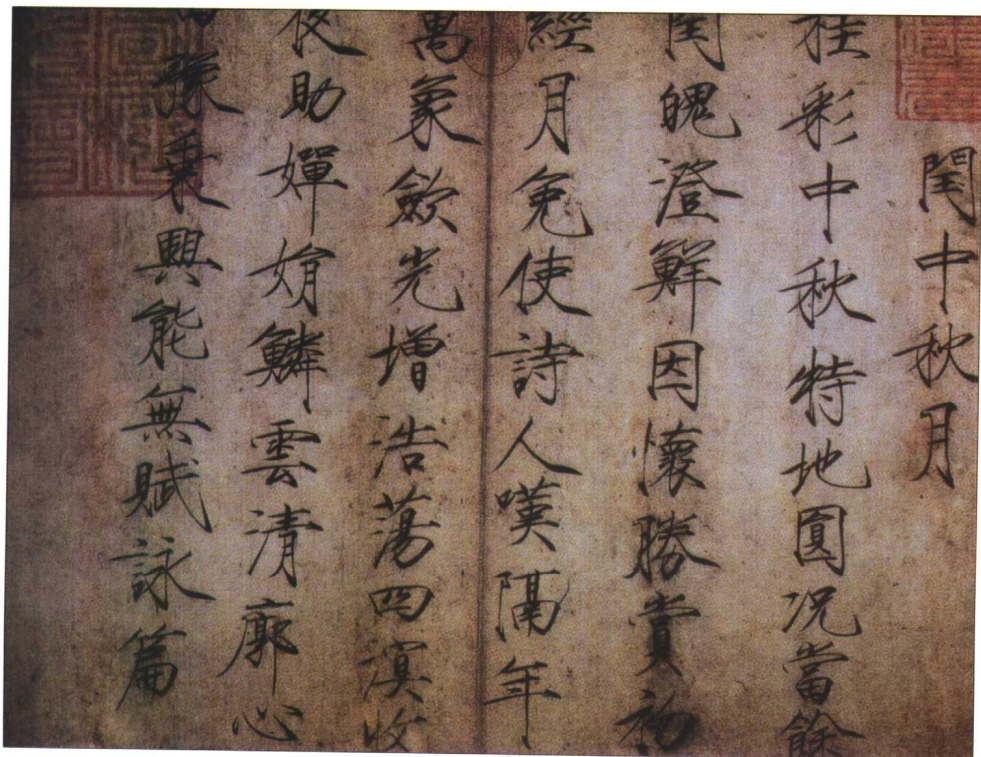 閏中秋月
桂彩中秋特地圓况當餘
閏魄澄鮮因懷勝賞初
經月免使詩人嘆隔年
萬象歛光增浩蕩四溟收
夜助嬋娟鱗雲清廓心
豫乗興能無賦詠篇